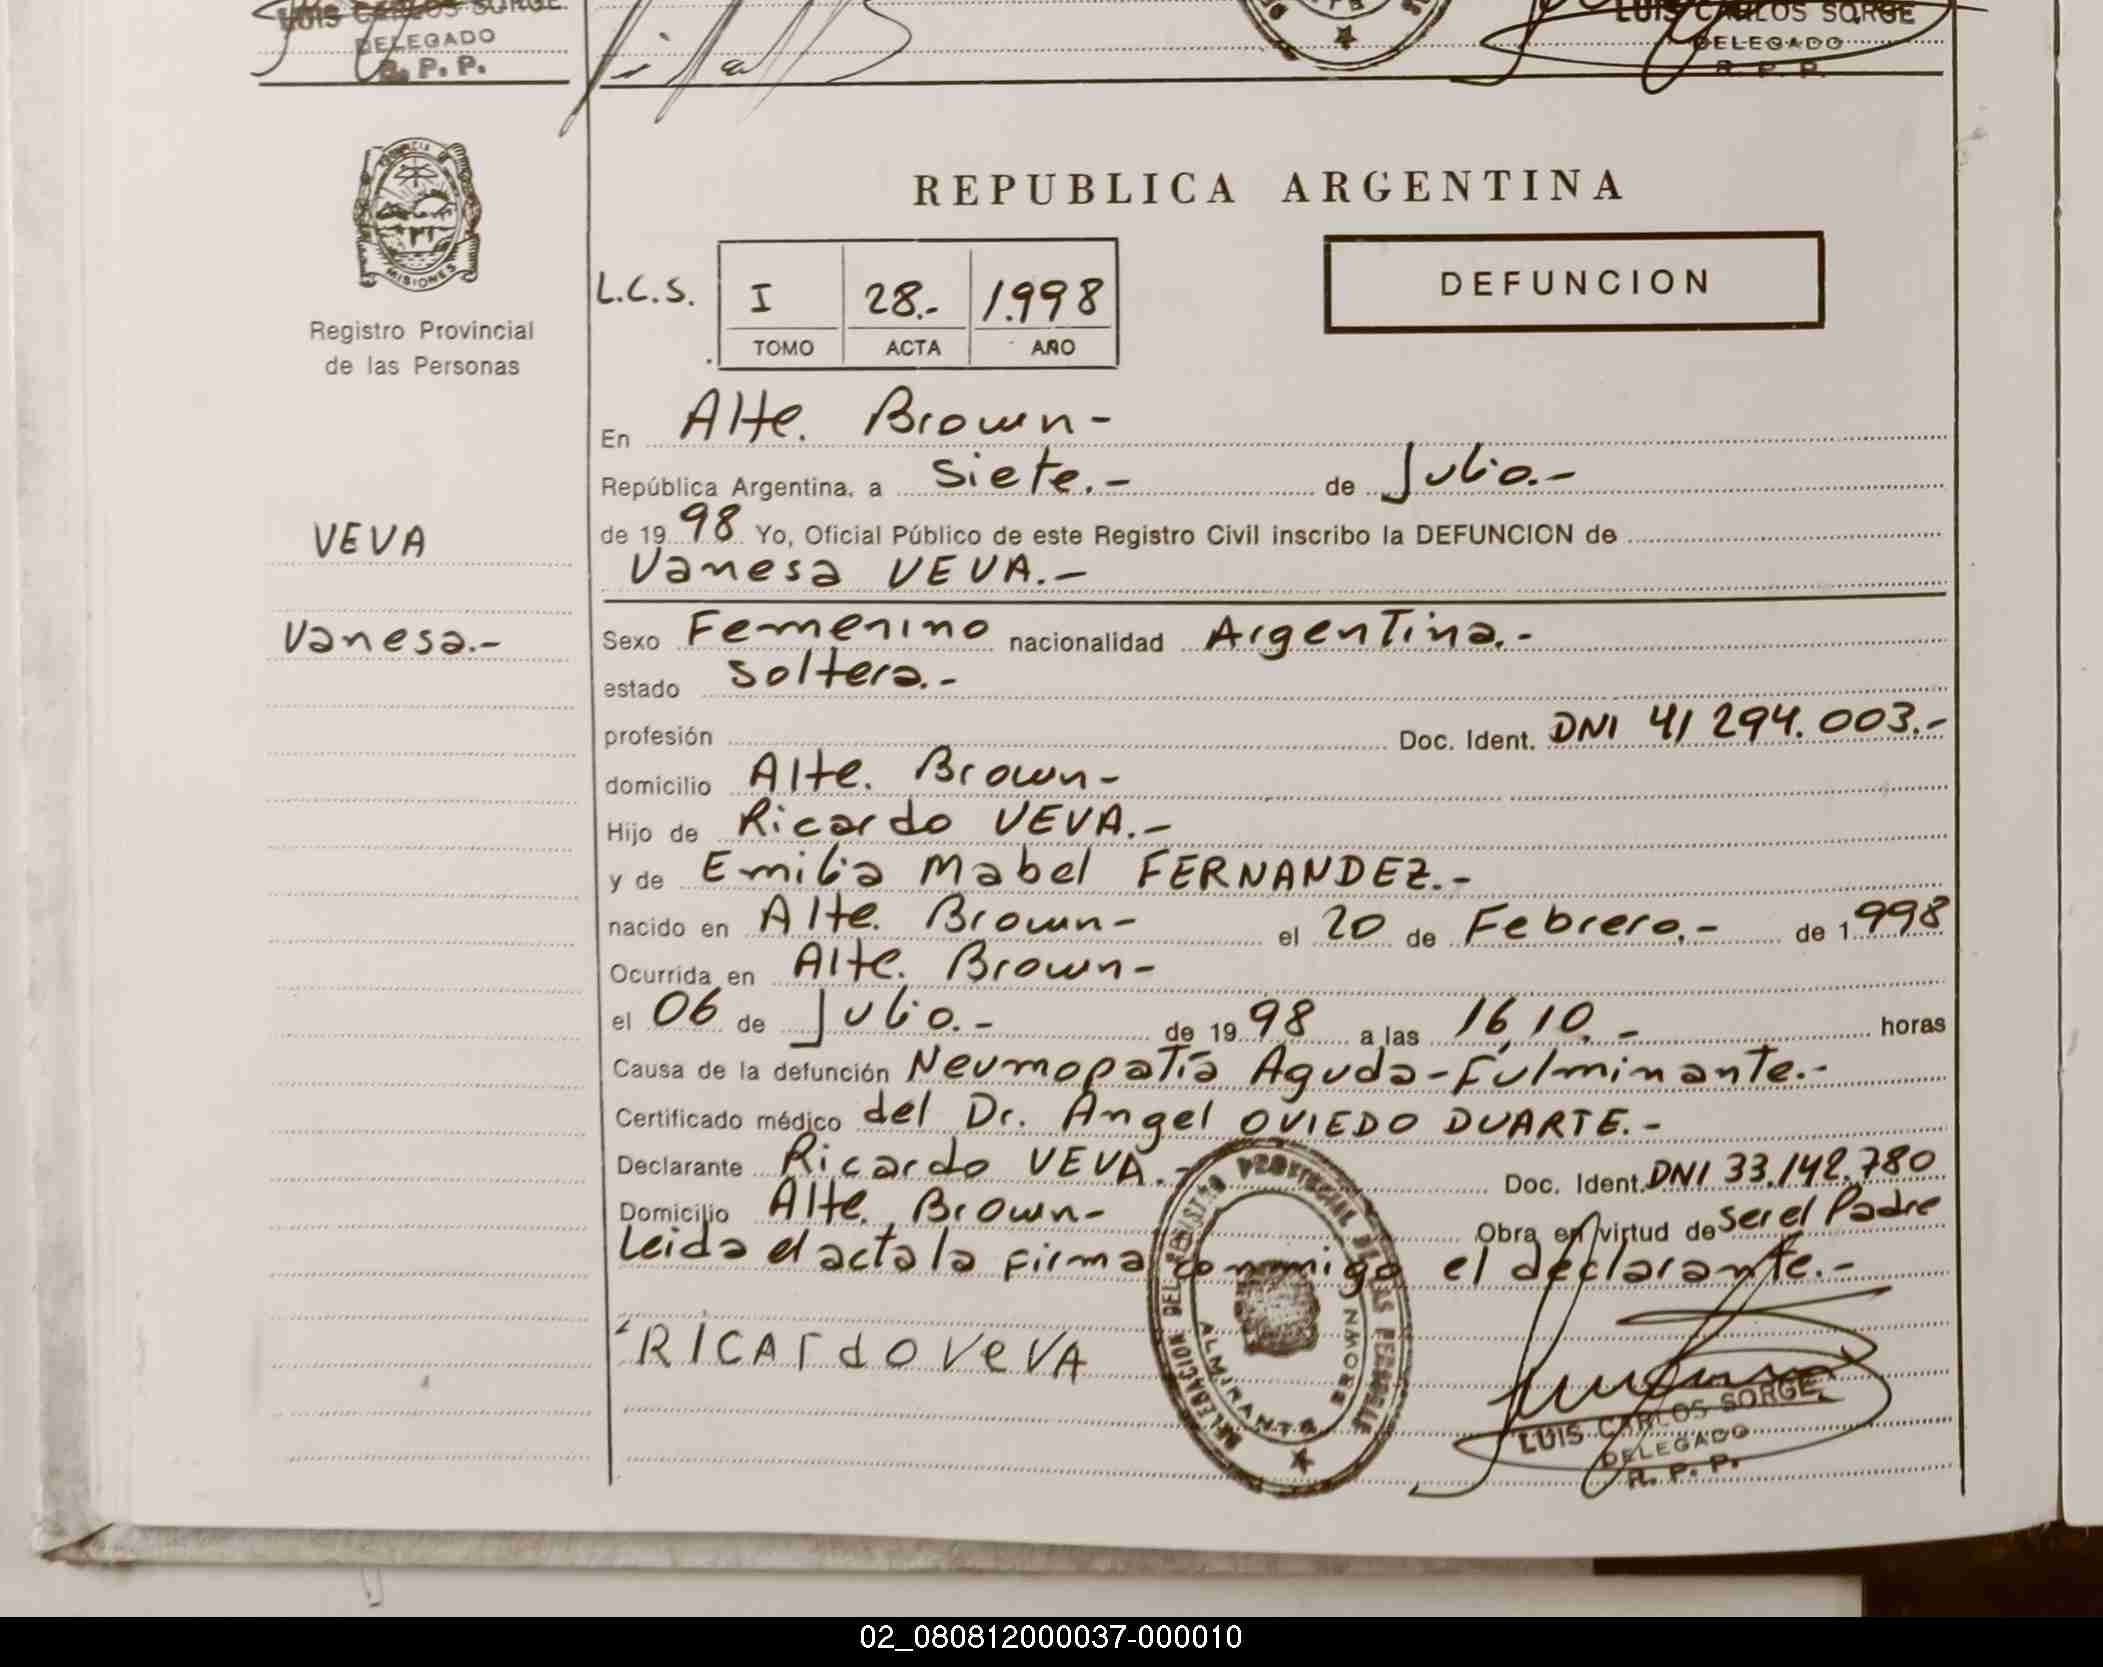 LUIS CARLOS SORGE
DELEGADO
R. P. P.
LUIS CARLOS SORGE
DELEGADO
R. P. P.
PROVINCIA DE
MISIONES
Registro Provincial
de las Personas
REPUBLICA ARGENTINA
L.C.S.
I 28.- 1.998
TOMO ACTA AÑO
DEFUNCION
En Alte. Brown-
República Argentina, a Siete.- de Julio.-
de 19 98 Yo, Oficial Público de este Registro Civil inscribo la DEFUNCION de
Vanesa VEVA.-
VEVA
Vanesa.-
Sexo Femenino nacionalidad Argentina.-
estado Soltera.-
profesión Doc. Ident. DNI 41 294.003.-
domicilio Alte. Brown-
Hijo de Ricardo VEVA.-
y de Emilia Mabel FERNANDEZ.-
nacido en Alte. Brown- el 20 de Febrero.- de 1 998
Ocurrida en Alte. Brown-
el 06 de Julio.- de 19 98 a las 16,10.- horas
Causa de la defunción Neumopatía Aguda-Fulminante.-
Certificado médico del Dr. Angel OVIEDO DUARTE.-
Declarante Ricardo VEVA.- Doc. Ident. DNI 33.142.780
Domicilio Alte. Brown- Obra en virtud de ser el Padre
Leida el acta la firma conmigo el declarante.-
RICArdO VeVA
DELEGACION DEL REGISTRO PROVINCIAL DE LAS PERSONAS
ALMIRANTE BROWN
LUIS CARLOS SORGE
DELEGADO
R. P. P.
02_080812000037-000010